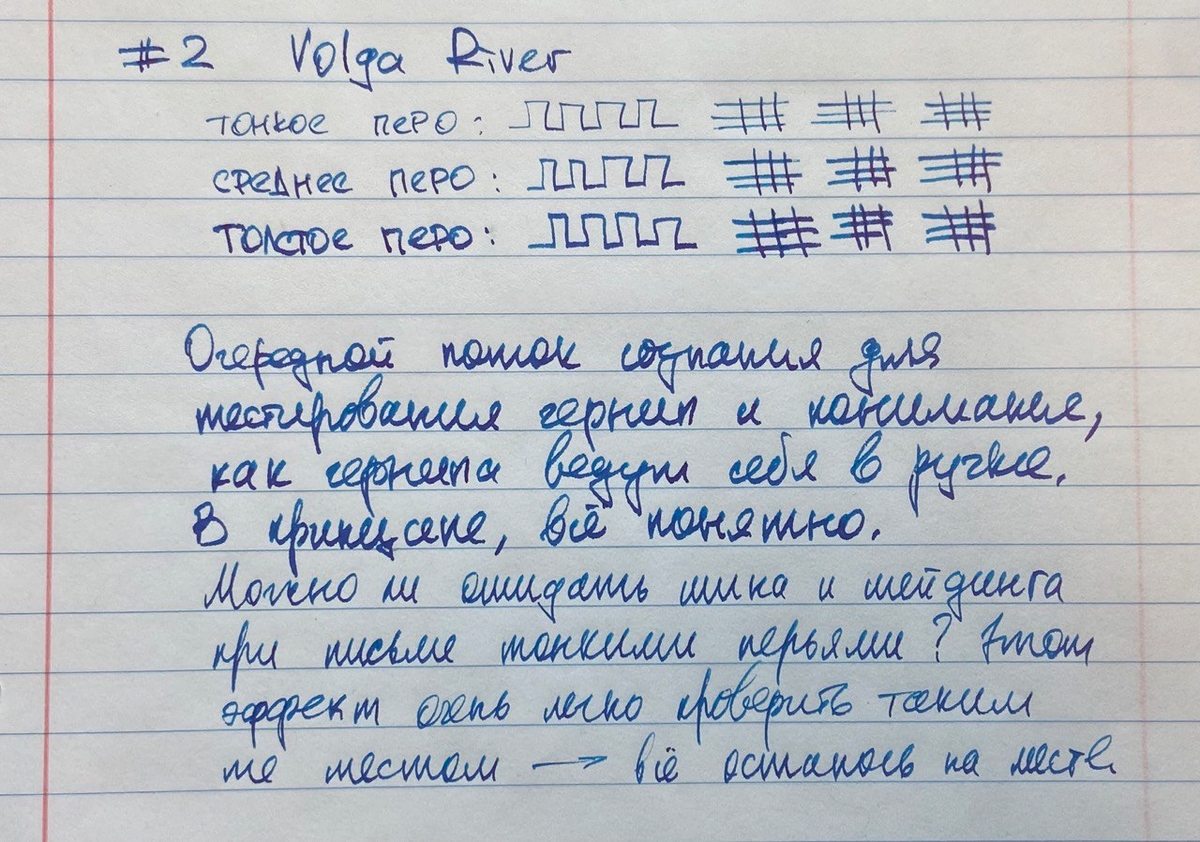 #2 Volga River
тонкое перо:
среднее перо:
толстое перо:
Очередной поток сознания для
тестирования чернил и понимания,
как чернила ведут себя в ручке.
В принципе, всё понятно.
Можно ли ожидать шика и шейдинга
при письме тонкими перьями? Этот
эффект очень легко проверить таким
же тестом → всё осталось на месте.